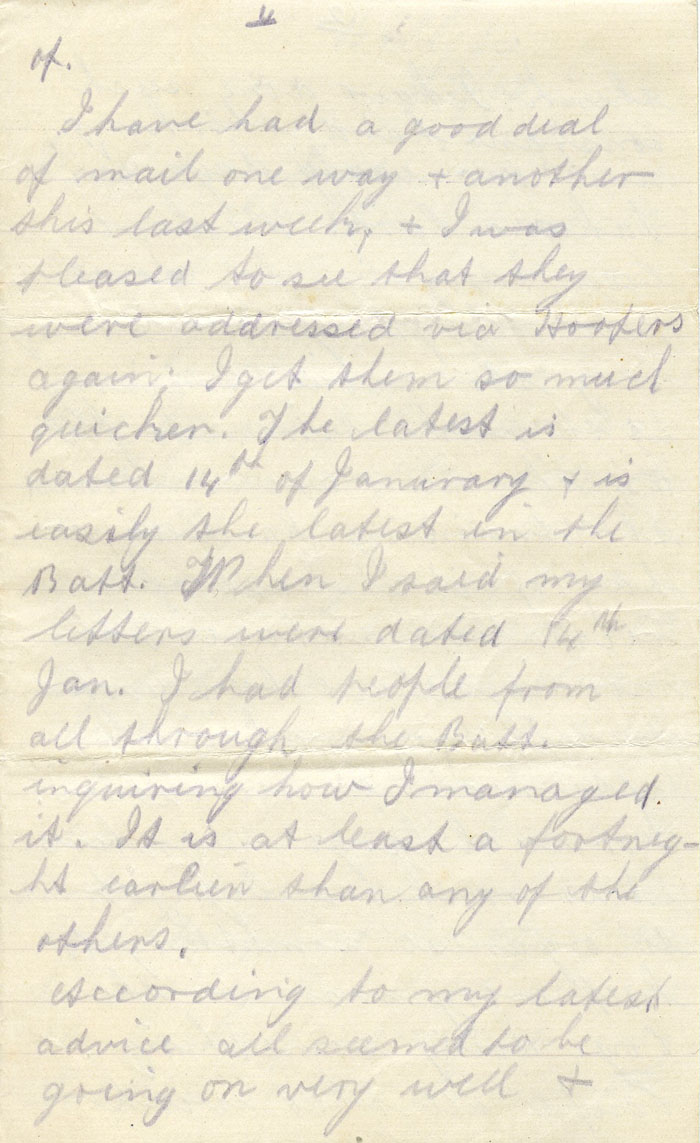 of.
I have had a good deal
of mail one way + another
this last week, + I was
pleased to see that they
were addressed via Hoopers
again; I get them so much
quicker. The latest is
dated 14th of Janurary + is
easily the latest in the
Batt. When I said my
letters were dated 14th
Jan. I had people from
all through the Batt.
inquiring how I managed
it. It is at least a fortneg-
ht earlien than any of the
others.
According to my latest
advice all seemed to be
going on very well +